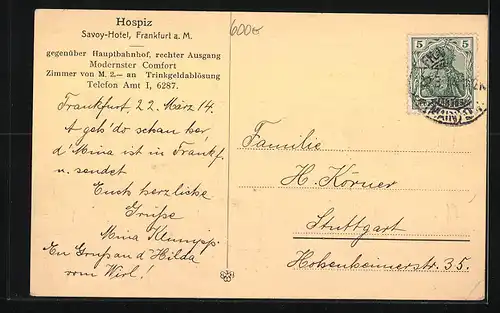 Hospiz
Savoy-Hotel, Frankfurt a. M.
gegenüber Hauptbahnhof, rechter Ausgang
Modernster Comfort
Zimmer von M. 2.— an Trinkgeldablösung
Telefon Amt I, 6287.
600e
5 5
Frankfurt, 22. März 14.
A geh' do schau her,
d' Mina ist in Frankf.
u. sendet
Euch herzliche
Grüße
Mina
En Gruß an d' Hilda
vom
Familie
H. Körner
Stuttgart
Hohenheimerstr. 35.